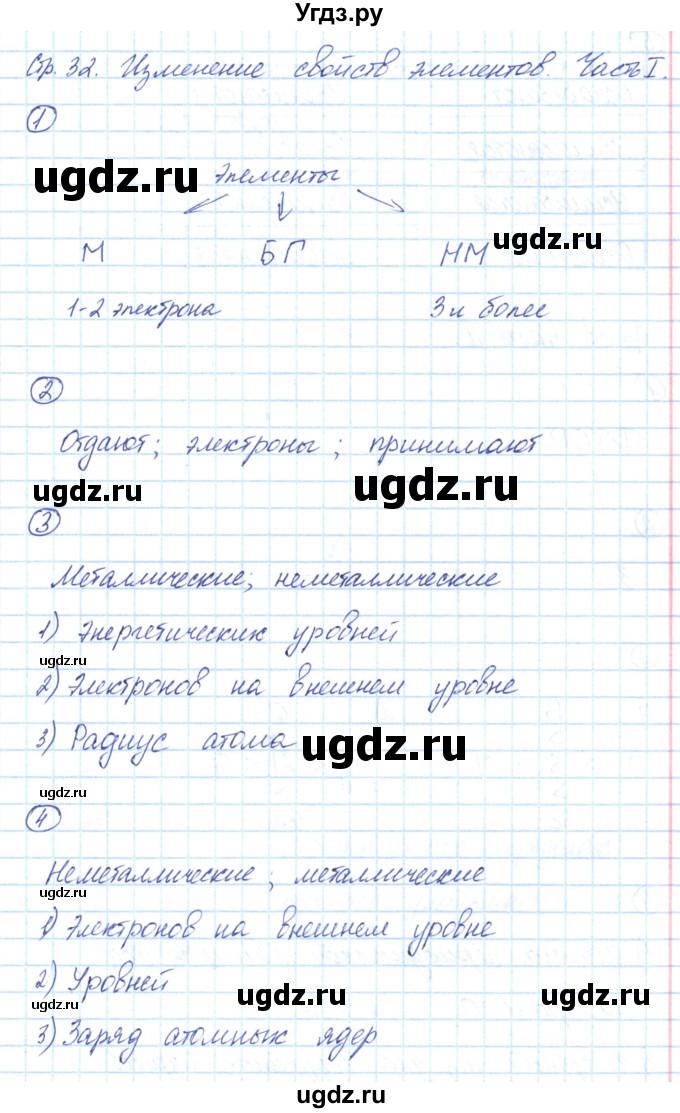 Угдз.ру
Стр. 32. Изменение свойств элементов. Часть I.
1
ugdz.ru Элементы
М БГ НМ ugdz.ru
1-2 электрона 3 и более
2
Отдают; электроны; принимают
ugdz.ru ugdz.ru
3
Металлические; неметаллические
1) Энергетических уровней
ugdz.ru
2) Электронов на внешнем уровне
3) Радиус атома ugdz.ru
ugdz.ru
4
Неметаллические; металлические
ugdz.ru
1) Электронов на внешнем уровне
2) Уровней ugdz.ru ugdz.ru
ugdz.ru
3) Заряд атомных ядер
ugdz.ru